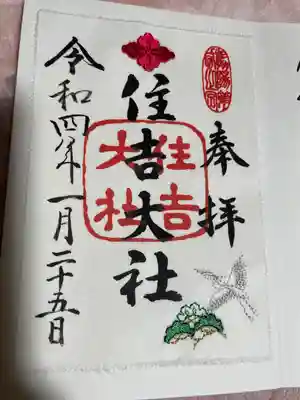 奉拝
住吉大社
住吉大社
令和四年一月二十五日